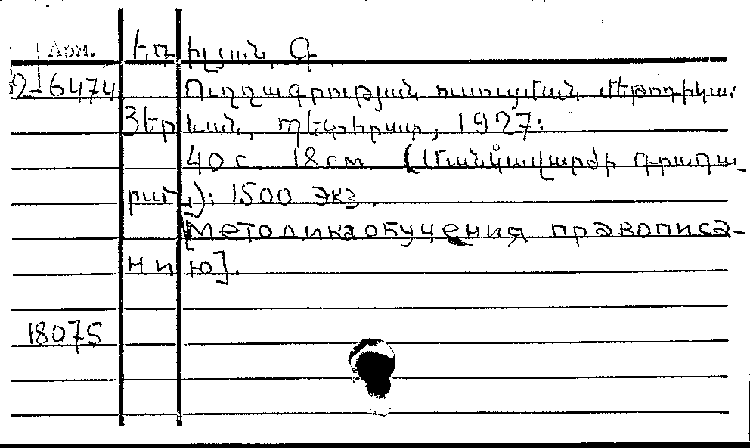 Арм. Եղիկյան Գ.
Ձ-6474 Ուղղագրության ուսուցման մեթոդիկա:
Յերևան, պետհրատ, 1927:
40 с. 18 cm (Մանկավարժի գրադա-
րան): 1500 экз.
[Методика обучения правописа-
нию].
18075